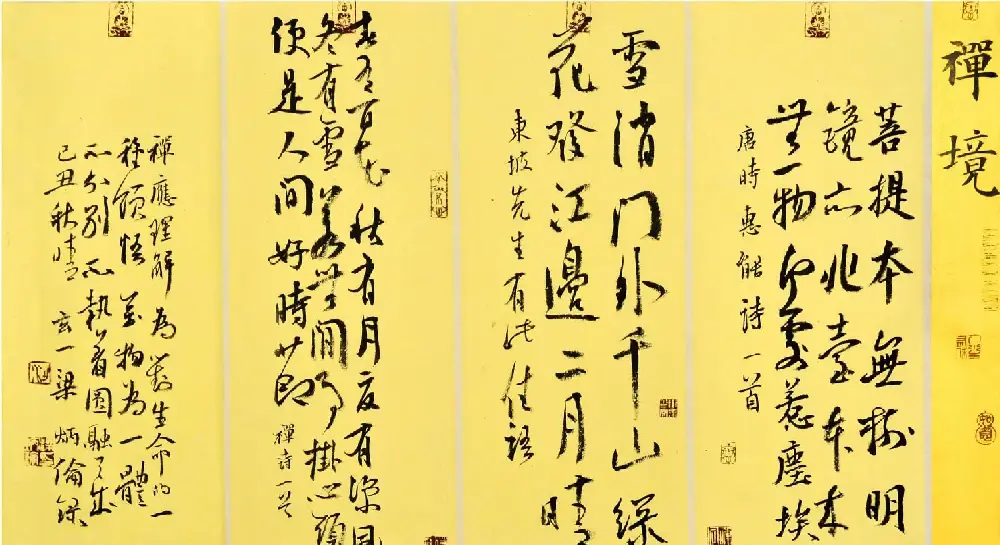 禪境
菩提本無樹明
鏡亦非臺本来
無一物何處惹塵埃
唐時惠能詩一首
雪消门外千山绿
花發江邊二月晴
東坡先生有此佳語
春有百花秋有月夏有涼風
冬有雪若無閒事掛心頭
便是人間好時節 禪詩一首
禪應理解為對生命的一
種領悟 萬物為一體
不分別不執著圓融
己丑秋晴 玄一 梁炳倫錄